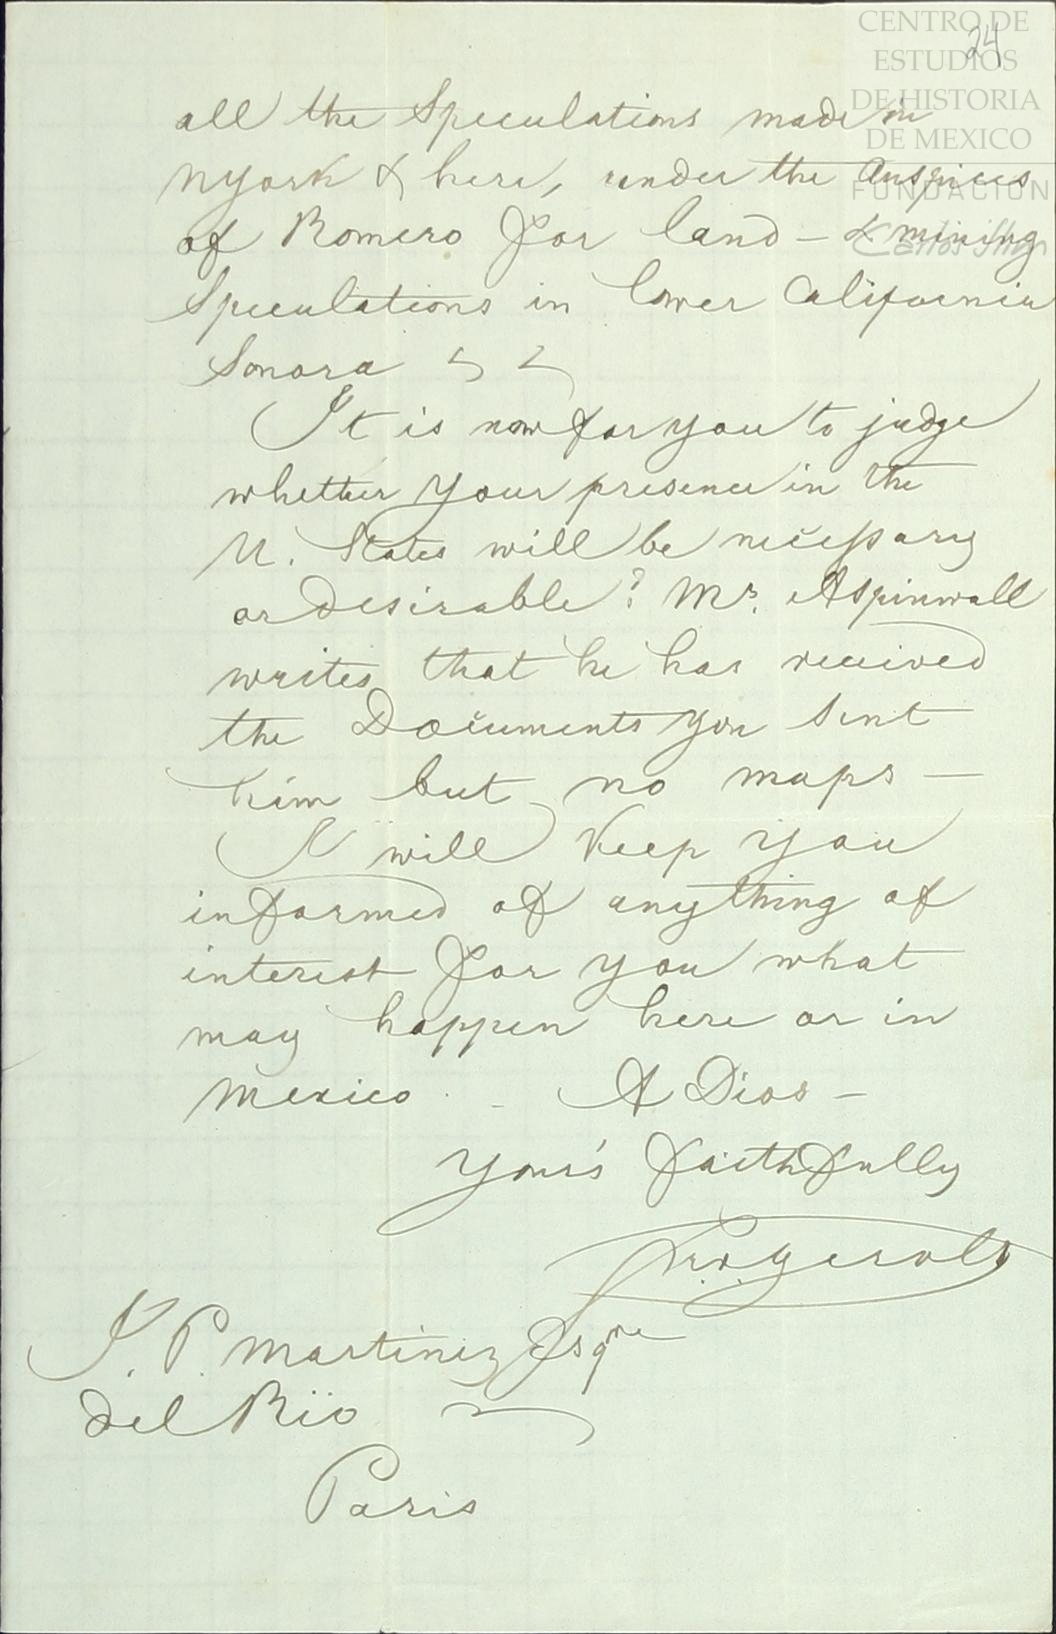 CENTRO DE
ESTUDIOS
DE HISTORIA
DE MEXICO
FUNDACIÓN
Carlos Slim
24
all the Speculations made in
NYork & here, under the auspices
of Romero for land – & mining
Speculations in lower California
Sonora
It is now for you to judge
whether your presence in the
U. States will be necessary
or desirable? Mr. Aspinwall
writes that he has received
the Documents you sent
him but no maps –
I will keep you
informed of anything of
interest for you what
may happen here or in
Mexico. – A Dios –
Your's faithfully
J. P. Martinez Esqre
del Rio
Paris